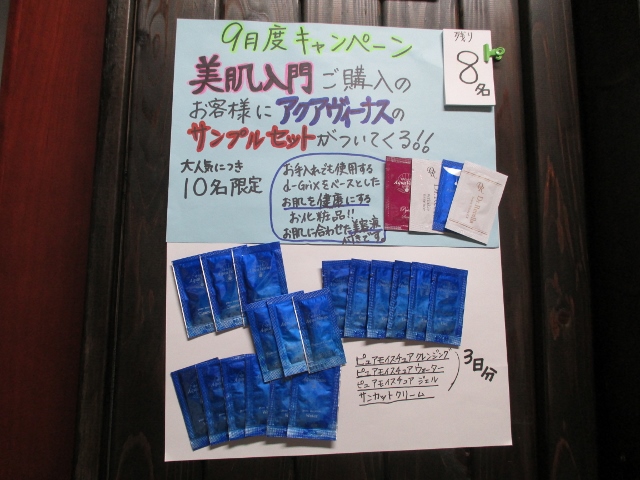 9月度キャンペーン
残り
8名
美肌入門ご購入の
お客様にアクアヴィーナスの
サンプルセットがついてくる!!
大人気につき
10名限定
お手入れでも使用する
d-Grixをベースとした
お肌を健康にする
お化粧品!!
お肌に合わせた美容液
付きです
ピュアモイスチュア クレンジング
ピュアモイスチュア ウォーター
ピュアモイスチュア ジェル
サンカットクリーム
3日分